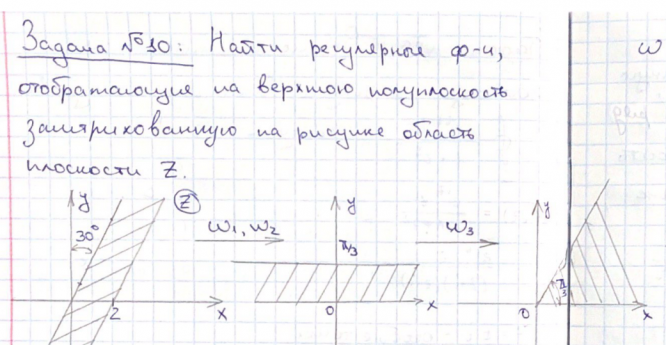 Задача №10: Найти регулярные ф-и,
отображающие на верхнюю полуплоскость
заштрихованную на рисунке область
плоскости Z.
y
30°
Z
2
x
0
ω₁, ω₂
y
π/3
0
x
ω₃
y
π/3
0
x
ω